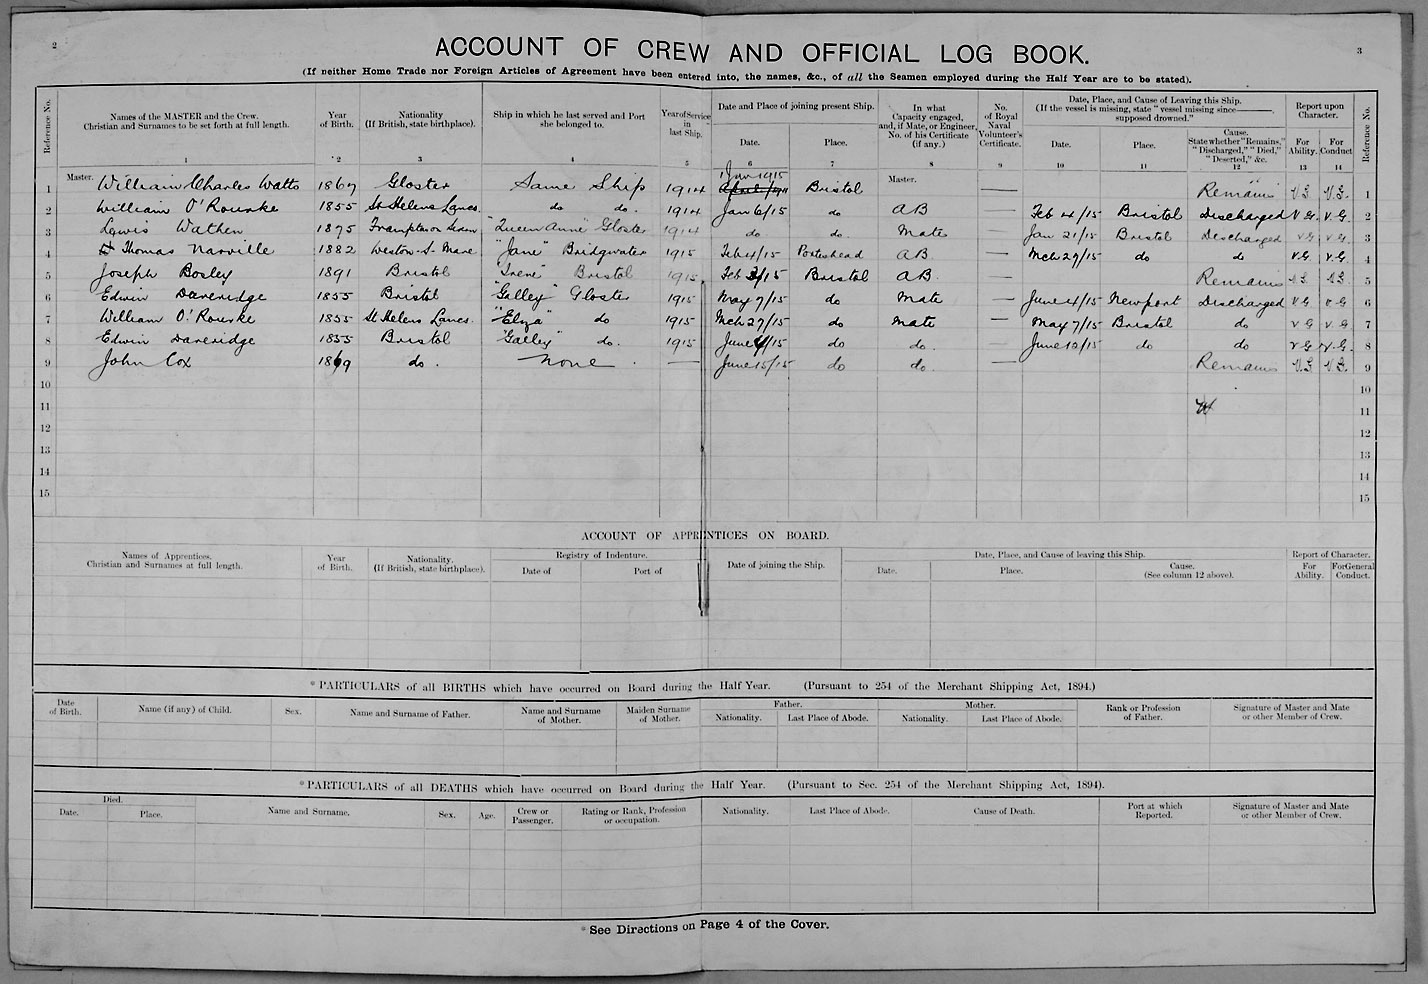 2
3
ACCOUNT OF CREW AND OFFICIAL LOG BOOK.
(If neither Home Trade nor Foreign Articles of Agreement have been entered into, the names, &c., of all the Seamen employed during the Half Year are to be stated).
Reference No. Names of the MASTER and the Crew. Christian and Surnames to be set forth at full length. Year of Birth. Nationality (If British, state birthplace). Ship in which he last served and Port she belonged to. Year of Service in last Ship. Date and Place of joining present Ship. Date. Place. In what Capacity engaged, and, if Mate, or Engineer, No. of his Certificate (if any.) No. of Royal Naval Volunteer's Certificate. Date, Place, and Cause of Leaving this Ship. (If the vessel is missing, state "vessel missing since——, supposed drowned." Date. Place. Cause. State whether "Remains," "Discharged," "Died," "Deserted," &c. Report upon Character. For Ability. For Conduct Reference No.
1 2 3 4 5 6 7 8 9 10 11 12 13 14
1 Master. William Charles Watts 1869 Gloster Same Ship 1914 1 Jan 1915 Bristol Master. — Remains V.G. V.G. 1
2 William O'Rourke 1855 St Helens Lancs. do do. 1914 Jan 6/15 do AB — Feb 4/15 Bristol Discharged V G. V. G. 2
3 Lewis Wathen 1875 Frampton on Severn "Queen Anne" Gloster 1914 do do. Mate — Jan 21/15 Bristol Discharged V G V G. 3
4 Thomas Narville 1882 Weston-S-Mare "Jane" Bridgwater 1915 Feb 4/15 Portishead AB — Mch 29/15 do do V.G. V.G. 4
5 Joseph Bosley 1891 Bristol "Irene" Bristol 1915 Feb /15 Bristol AB. Remains V.G. V.G. 5
6 Edwin Daveridge 1855 Bristol "Galley" Gloster 1915 May 7/15 do Mate — June 4/15 Newport Discharged V G. V. G 6
7 William O'Rourke 1855 St Helens Lancs. "Eliza" do 1915 Mch 29/15 do Mate — May 7/15 Bristol do V G. V G. 7
8 Edwin Daveridge 1855 Bristol "Galley" do. 1915 June 4/15 do do. — June 12/15 do do V G V.G. 8
9 John Cox 1869 do. None — June 15/15 do do. — Remains V.G. V.G. 9
10 10
11 11
12 12
13 13
14 14
15 15
ACCOUNT OF APPRENTICES ON BOARD.
Names of Apprentices. Christian and Surnames at full length. Year of Birth. Nationality. (If British, state birthplace). Registry of Indenture. Date of Port of Date of joining the Ship. Date, Place, and Cause of leaving this Ship. Date. Place. Cause. (See column 12 above). Report of Character. For Ability. For General Conduct.
*PARTICULARS of all BIRTHS which have occurred on Board during the Half Year. (Pursuant to 254 of the Merchant Shipping Act, 1894.)
Date of Birth. Name (if any) of Child. Sex. Name and Surname of Father. Name and Surname of Mother. Maiden Surname of Mother. Father. Nationality. Last Place of Abode. Mother. Nationality. Last Place of Abode. Rank or Profession of Father. Signature of Master and Mate or other Member of Crew.
*PARTICULARS of all DEATHS which have occurred on Board during the Half Year. (Pursuant to Sec. 254 of the Merchant Shipping Act, 1894).
Died. Date. Place. Name and Surname. Sex. Age. Crew or Passenger. Rating or Rank, Profession or occupation. Nationality. Last Place of Abode. Cause of Death. Port at which Reported. Signature of Master and Mate or other Member of Crew.
*See Directions on Page 4 of the Cover.